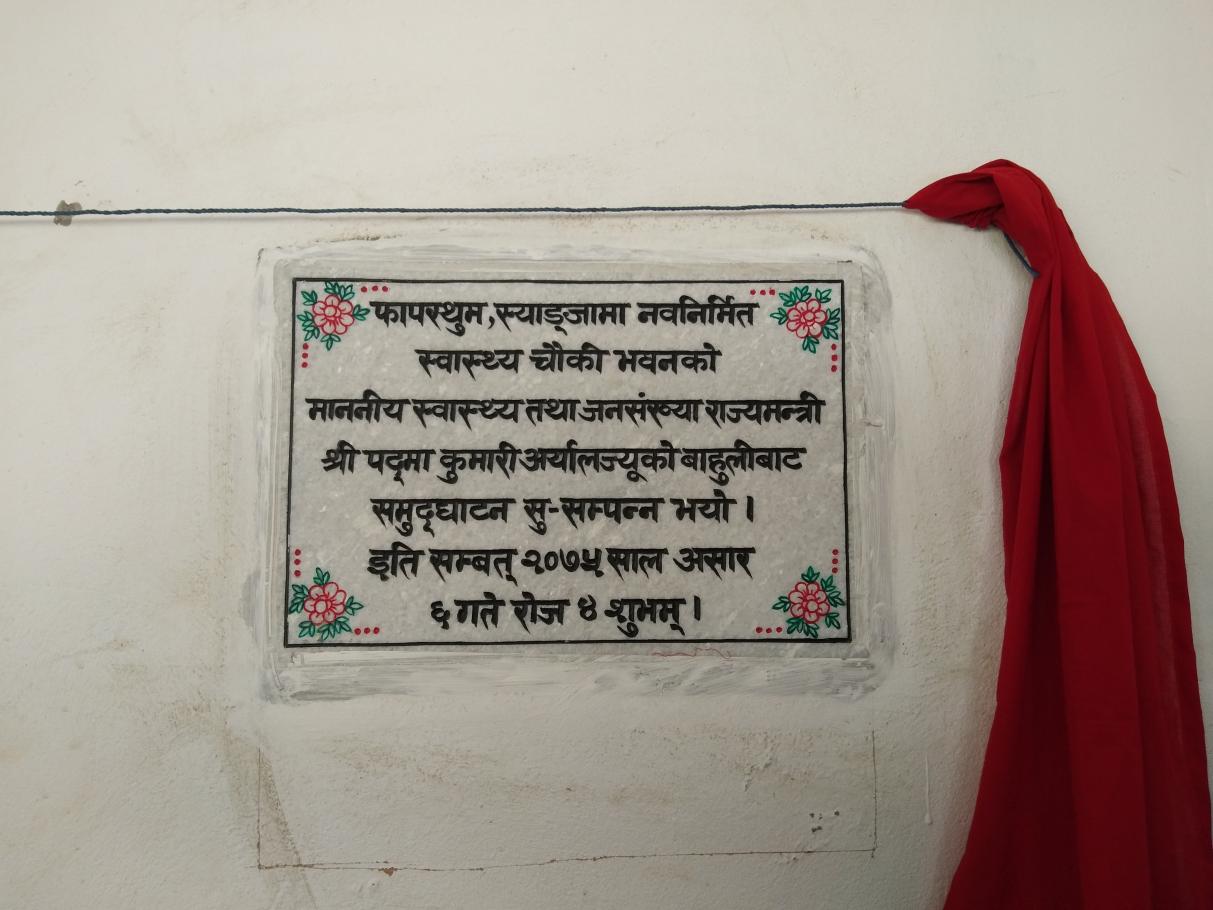 फापरथुम,स्याङ्जामा नवनिर्मित
स्वास्थ्य चौकी भवनको
माननीय स्वास्थ्य तथा जनसंख्या राज्यमन्त्री
श्री पद्मा कुमारी अर्यालज्यूको बाहुलीबाट
समुद्घाटन सु-सम्पन्न भयो ।
इति सम्बत् २०७५ साल असार
६ गते रोज ४ शुभम् ।